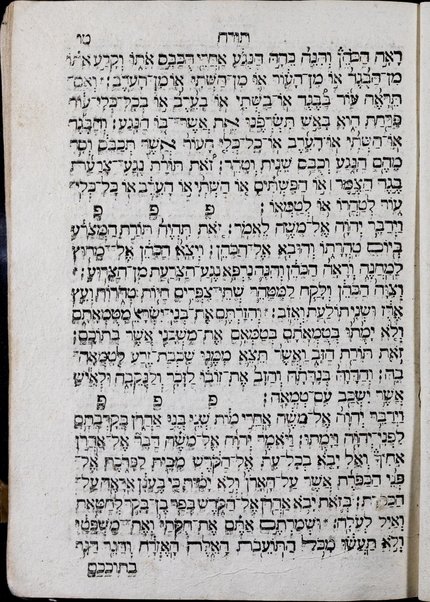 תורה
רָאָה הַכֹּהֵן וְהִנֵּה כֵּהָה הַנֶּגַע אַחֲרֵי הֻכַּבֵּס אֹתוֹ וְקָרַע אֹתוֹ
מִן־הַבֶּגֶד אוֹ מִן־הָעוֹר אוֹ מִן־הַשְּׁתִי אוֹ מִן־הָעֵרֶב: וְאִם־
תֵּרָאֶה עוֹד בַּבֶּגֶד אוֹ־בַשְּׁתִי אוֹ־בָעֵרֶב אוֹ בְכָל־כְּלִי־עוֹר
פֹּרַחַת הִוא בָּאֵשׁ תִּשְׂרְפֶנּוּ אֵת אֲשֶׁר־בּוֹ הַנָּגַע: וְהַבֶּגֶד
אוֹ־הַשְּׁתִי אוֹ־הָעֵרֶב אוֹ־כָל־כְּלִי הָעוֹר אֲשֶׁר תְּכַבֵּס וְסָר
מֵהֶם הַנָּגַע וְכֻבַּס שֵׁנִית וְטָהֵר: זֹאת תּוֹרַת נֶגַע־צָרַעַת
בֶּגֶד הַצֶּמֶר אוֹ הַפִּשְׁתִּים אוֹ הַשְּׁתִי אוֹ הָעֵרֶב אוֹ כָּל־כְּלִי־
עוֹר לְטַהֲרוֹ אוֹ לְטַמְּאוֹ: פ פ פ
וַיְדַבֵּר יְהוָֹה אֶל־מֹשֶׁה לֵּאמֹר: זֹאת תִּהְיֶה תּוֹרַת הַמְּצֹרָע
בְּיוֹם טָהֳרָתוֹ וְהוּבָא אֶל־הַכֹּהֵן: וְיָצָא הַכֹּהֵן אֶל־מִחוּץ
לַמַּחֲנֶה וְרָאָה הַכֹּהֵן וְהִנֵּה נִרְפָּא נֶגַע־הַצָּרַעַת מִן־הַצָּרוּעַ:
וְצִוָּה הַכֹּהֵן וְלָקַח לַמִּטַּהֵר שְׁתֵּי־צִפֳּרִים חַיּוֹת טְהֹרוֹת וְעֵץ
אֶרֶז וּשְׁנִי תוֹלַעַת וְאֵזֹב: וְהִזַּרְתֶּם אֶת־בְּנֵי־יִשְׂרָאֵל מִטֻּמְאָתָם
וְלֹא יָמֻתוּ בְּטֻמְאָתָם בְּטַמְּאָם אֶת־מִשְׁכָּנִי אֲשֶׁר בְּתוֹכָם:
זֹאת תּוֹרַת הַזָּב וַאֲשֶׁר תֵּצֵא מִמֶּנּוּ שִׁכְבַת־זֶרַע לְטָמְאָה־
בָהּ: וְהַדָּוָה בְּנִדָּתָהּ וְהַזָּב אֶת־זוֹבוֹ לַזָּכָר וְלַנְּקֵבָה וּלְאִישׁ
אֲשֶׁר יִשְׁכַּב עִם־טְמֵאָה: פ פ פ
וַיְדַבֵּר יְהוָֹה אֶל־מֹשֶׁה אַחֲרֵי מוֹת שְׁנֵי בְּנֵי אַהֲרֹן בְּקָרְבָתָם
לִפְנֵי־יְהוָֹה וַיָּמֻתוּ: וַיֹּאמֶר יְהוָֹה אֶל־מֹשֶׁה דַּבֵּר אֶל־אַהֲרֹן
אָחִיךָ וְאַל יָבֹא בְכָל־עֵת אֶל־הַקֹּדֶשׁ מִבֵּית לַפָּרֹכֶת אֶל־
פְּנֵי הַכַּפֹּרֶת אֲשֶׁר עַל־הָאָרֹן וְלֹא יָמוּת כִּי בֶּעָנָן אֵרָאֶה עַל־
הַכַּפֹּרֶת: בְּזֹאת יָבֹא אַהֲרֹן אֶל־הַקֹּדֶשׁ בְּפַר בֶּן־בָּקָר לְחַטָּאת
וְאַיִל לְעֹלָה: וּשְׁמַרְתֶּם אַתֶּם אֶת־חֻקֹּתַי וְאֶת־מִשְׁפָּטַי
וְלֹא תַעֲשׂוּ מִכֹּל הַתּוֹעֵבֹת הָאֵלֶּה הָאֶזְרָח וְהַגֵּר הַגָּר
בְּתוֹכְכֶם